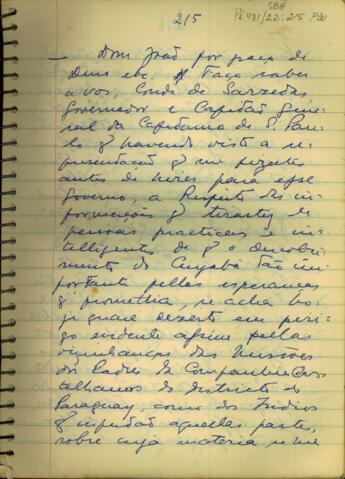 215
SBH
Pi 481/22:215 P90
— Dom João por graça de
Deus etc. Faço saber
a vós, Conde de Sarzedas
Governador e Capitão Gene-
ral da Capitania de S. Pau-
lo q havendo visto a re-
presentação q me fizestes
antes de hires para esse
Governo, a Respeito das in-
formações q tirastes de
pessoas practicas e in-
telligentes de q o descobri-
mento do Cuyabá tão im-
portante pellas esperanças
q promethia, se acha ho-
je quase dezerto em peri-
go evidente assim pellas
vizinhanças das missões
dos Padres da Companhia Cas-
telhanos do districto do
Paraguay, como dos Indios
q infestão aquellas partes,
sobre cuja materia se me